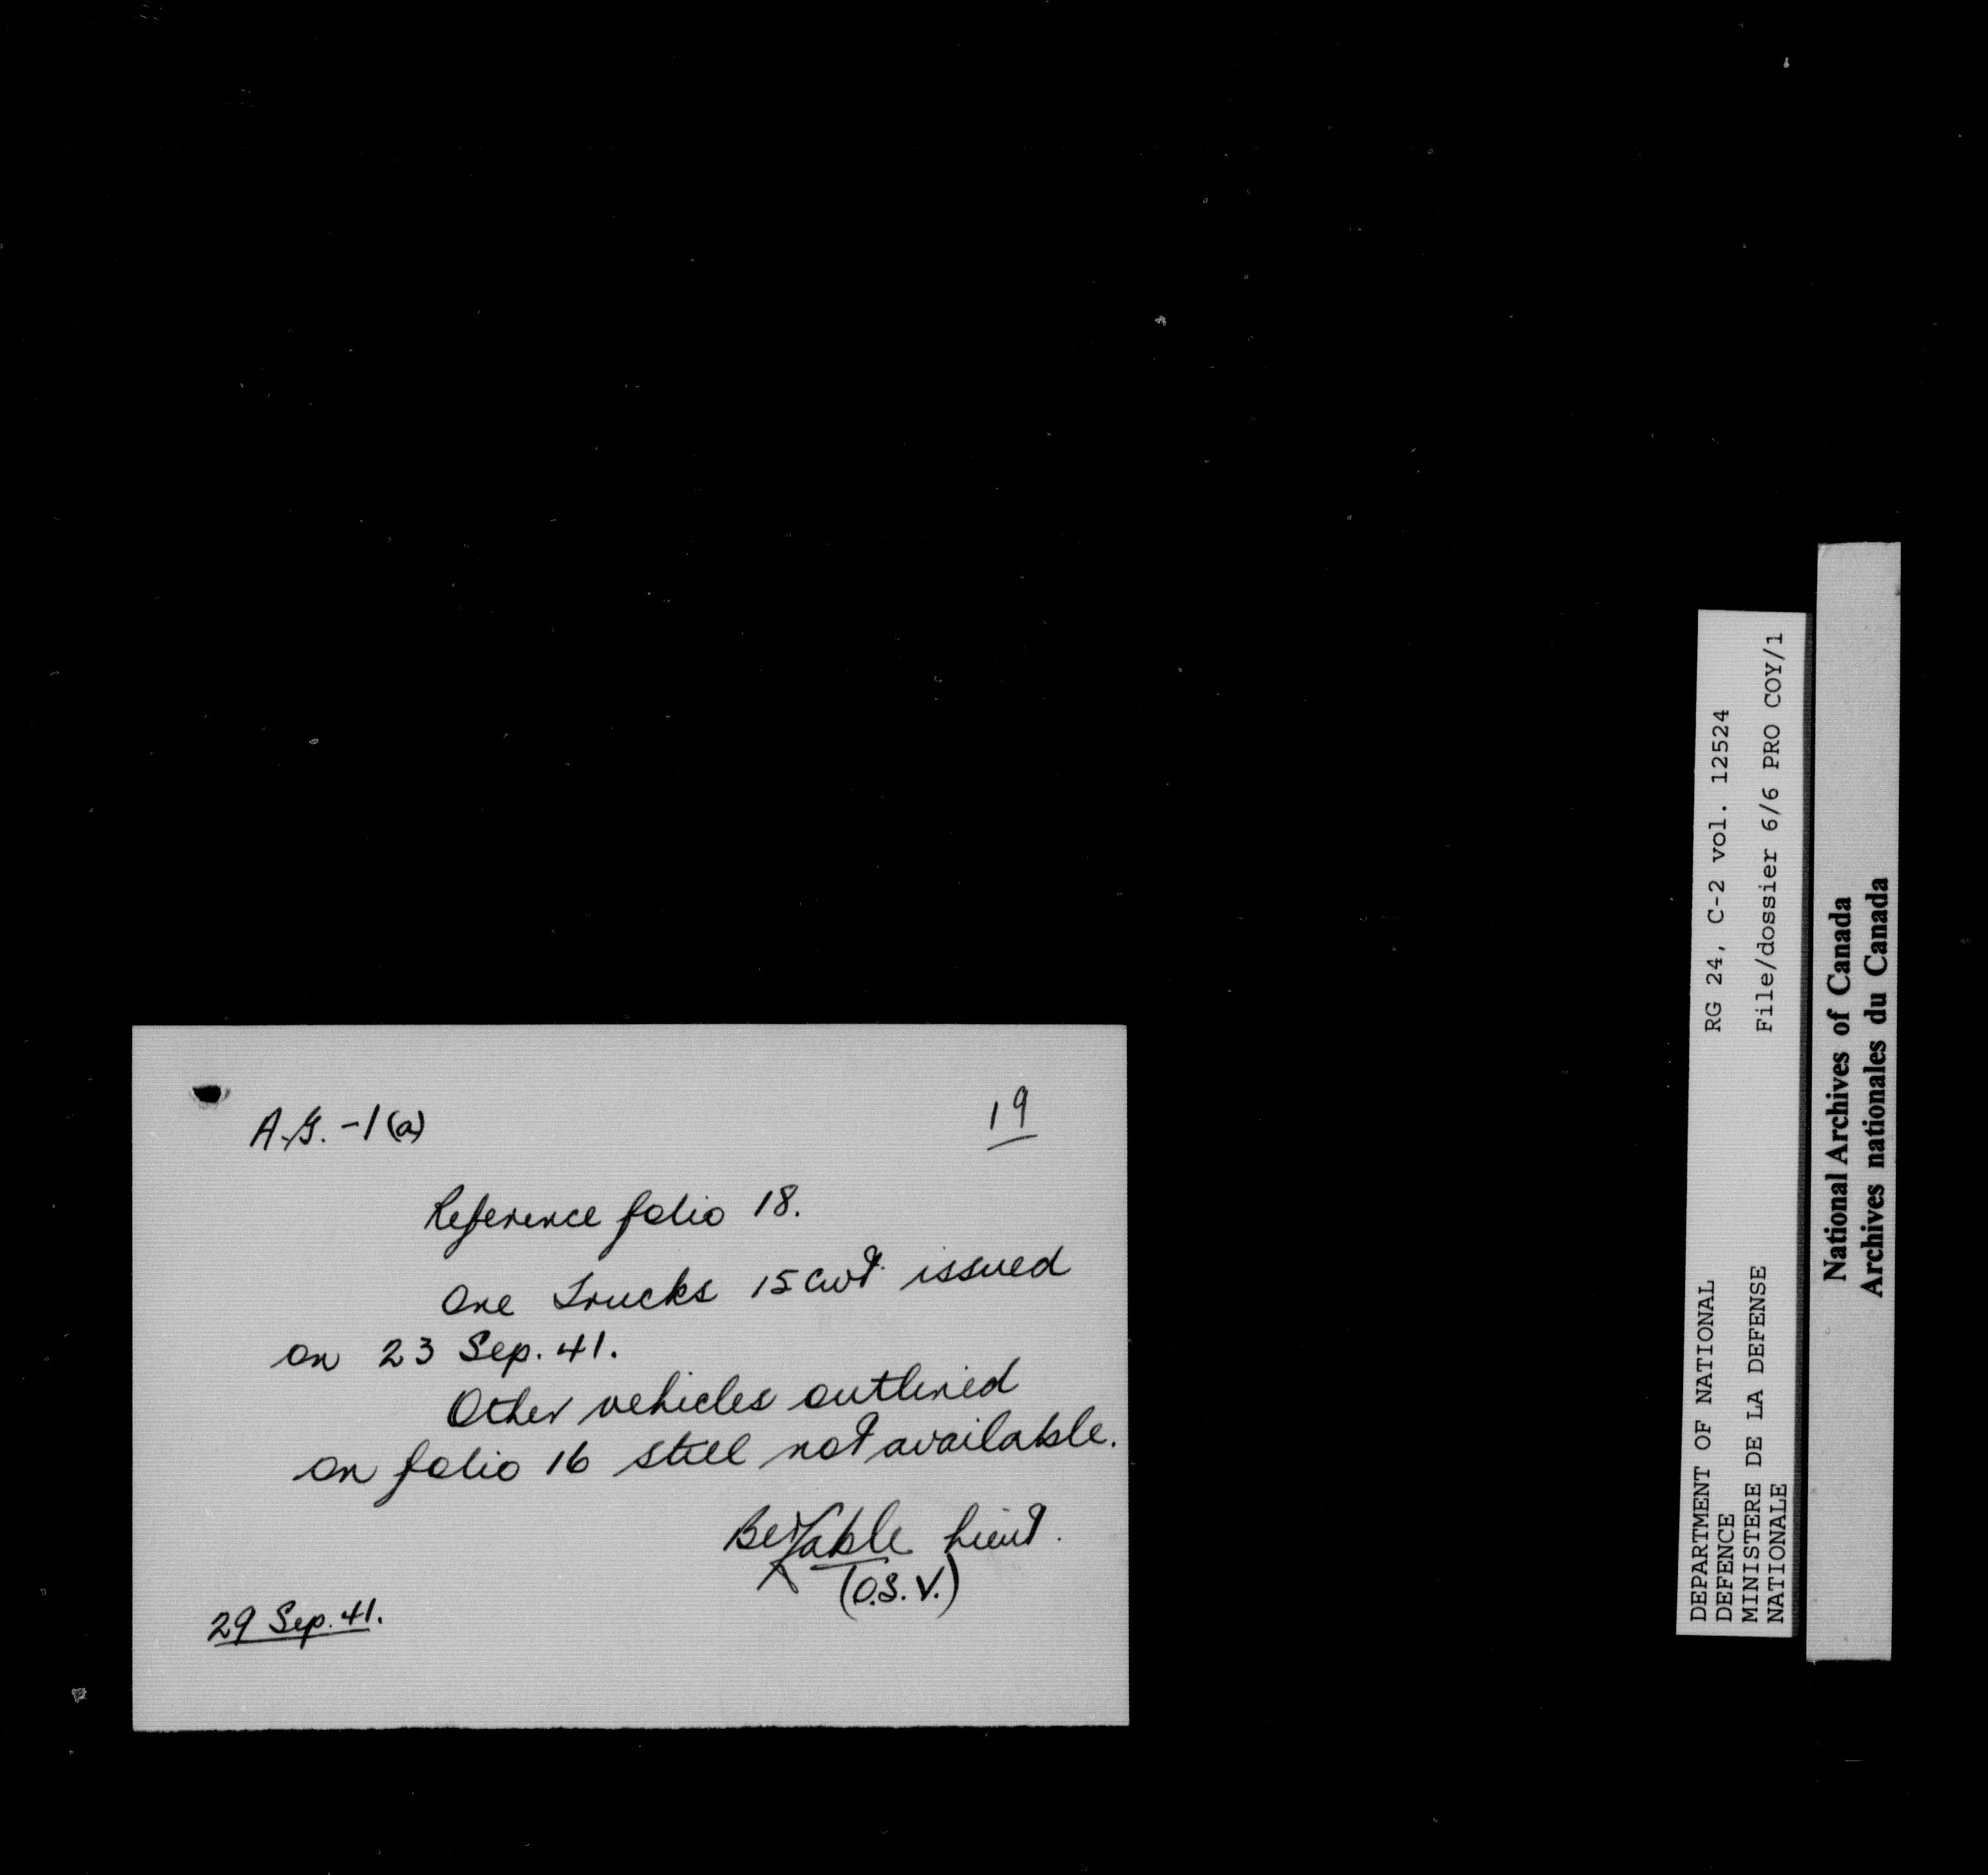 A.G. -1(a)
19
Reference folio 18.
One Trucks 15 cwt. issued
on 23 Sep. 41.
Other vehicles outlined
on folio 16 still not available.
Lieut.
(O.S.V.)
29 Sep. 41.
RG 24, C-2 vol. 12524
File/dossier 6/6 PRO COY/1
DEPARTMENT OF NATIONAL
DEFENCE
MINISTERE DE LA DEFENSE
NATIONALE
National Archives of Canada
Archives nationales du Canada